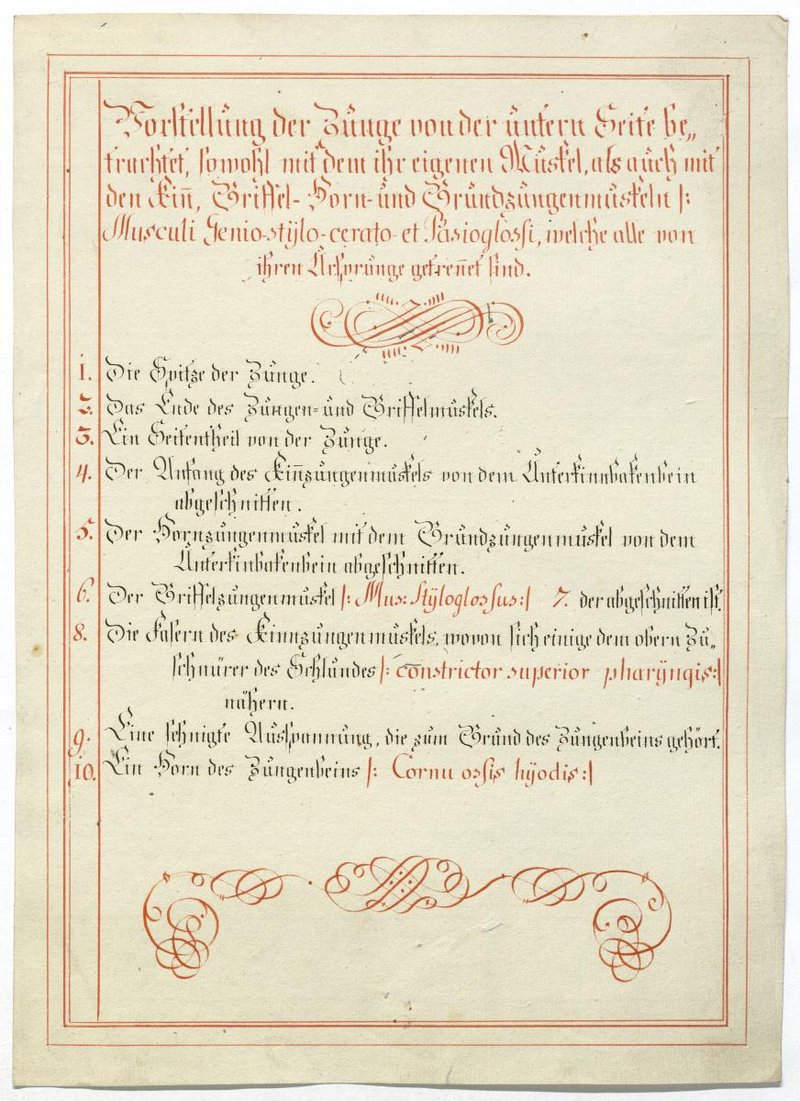 Vorstellung der Zunge von der untern Seite be„
trachtet, sowohl mit dem ihr eigenen Muskel, als auch mit
den Kin̄, Griffel- Horn- und Grundzungenmuskeln |:
Musculi Genio-stÿlo-cerato-et Basioglossi, welche alle von
ihren Ursprunge getren̄et sind.
1. Die Spitze der Zunge.
2. Das Ende des Zungen= und Griffelmuskels.
3. Ein Seitentheil von der Zunge.
4. Der Anfang des Kin̄zungenmuskels von dem Unterkinnbakenbein
abgeschnitten.
5. Der Hornzungenmuskel mit dem Grundzungenmuskel von dem
Unterkinbakenbein abgeschnitten.
6. Der Griffelzungenmuskel |: Mus: Stÿloglossus :| 7. der abgeschnitten ist.
8. Die Fasern des Kinnzungenmuskels, wovon sich einige dem obern Zu„
schnürer des Schlundes |: constrictor superior pharÿngis :|
nähern.
9. Eine sehnigte Ausspannung, die zum Grund des Zungenbeins gehört.
10. Ein Horn des Zungenbeins |: Cornu ossis hÿodis :|